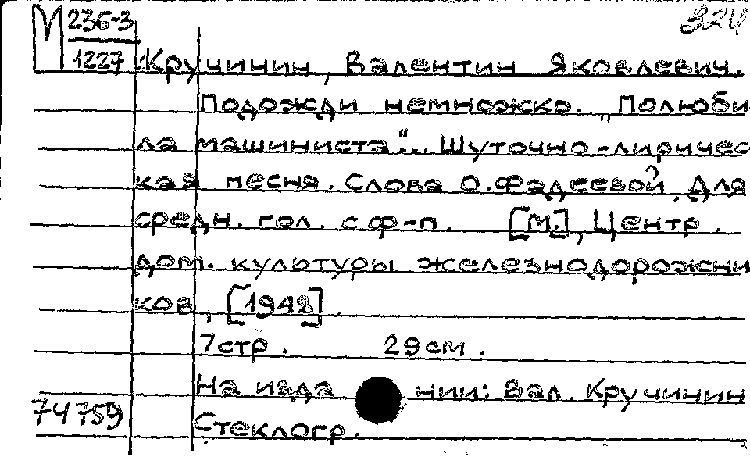 М 236-3 324
1227 Кручинин, Валентин Яковлевич.
Подожди немножко. „Полюби
ла машиниста"... Шуточно-лиричес
кая песня. Слова О. Фадеевой. Для
средн. гол. с ф-п. [М.], Центр.
дом. культуры железнодорожни
ков, [1942].
7 стр. 29 см.
На издании: Вал. Кручинин
74759 Стеклогр.